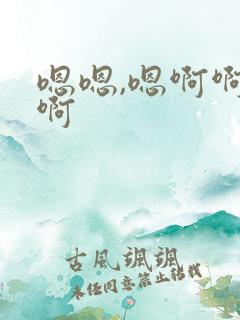 嗯嗯,嗯啊啊
啊
古風颯颯
未经同意禁止转载